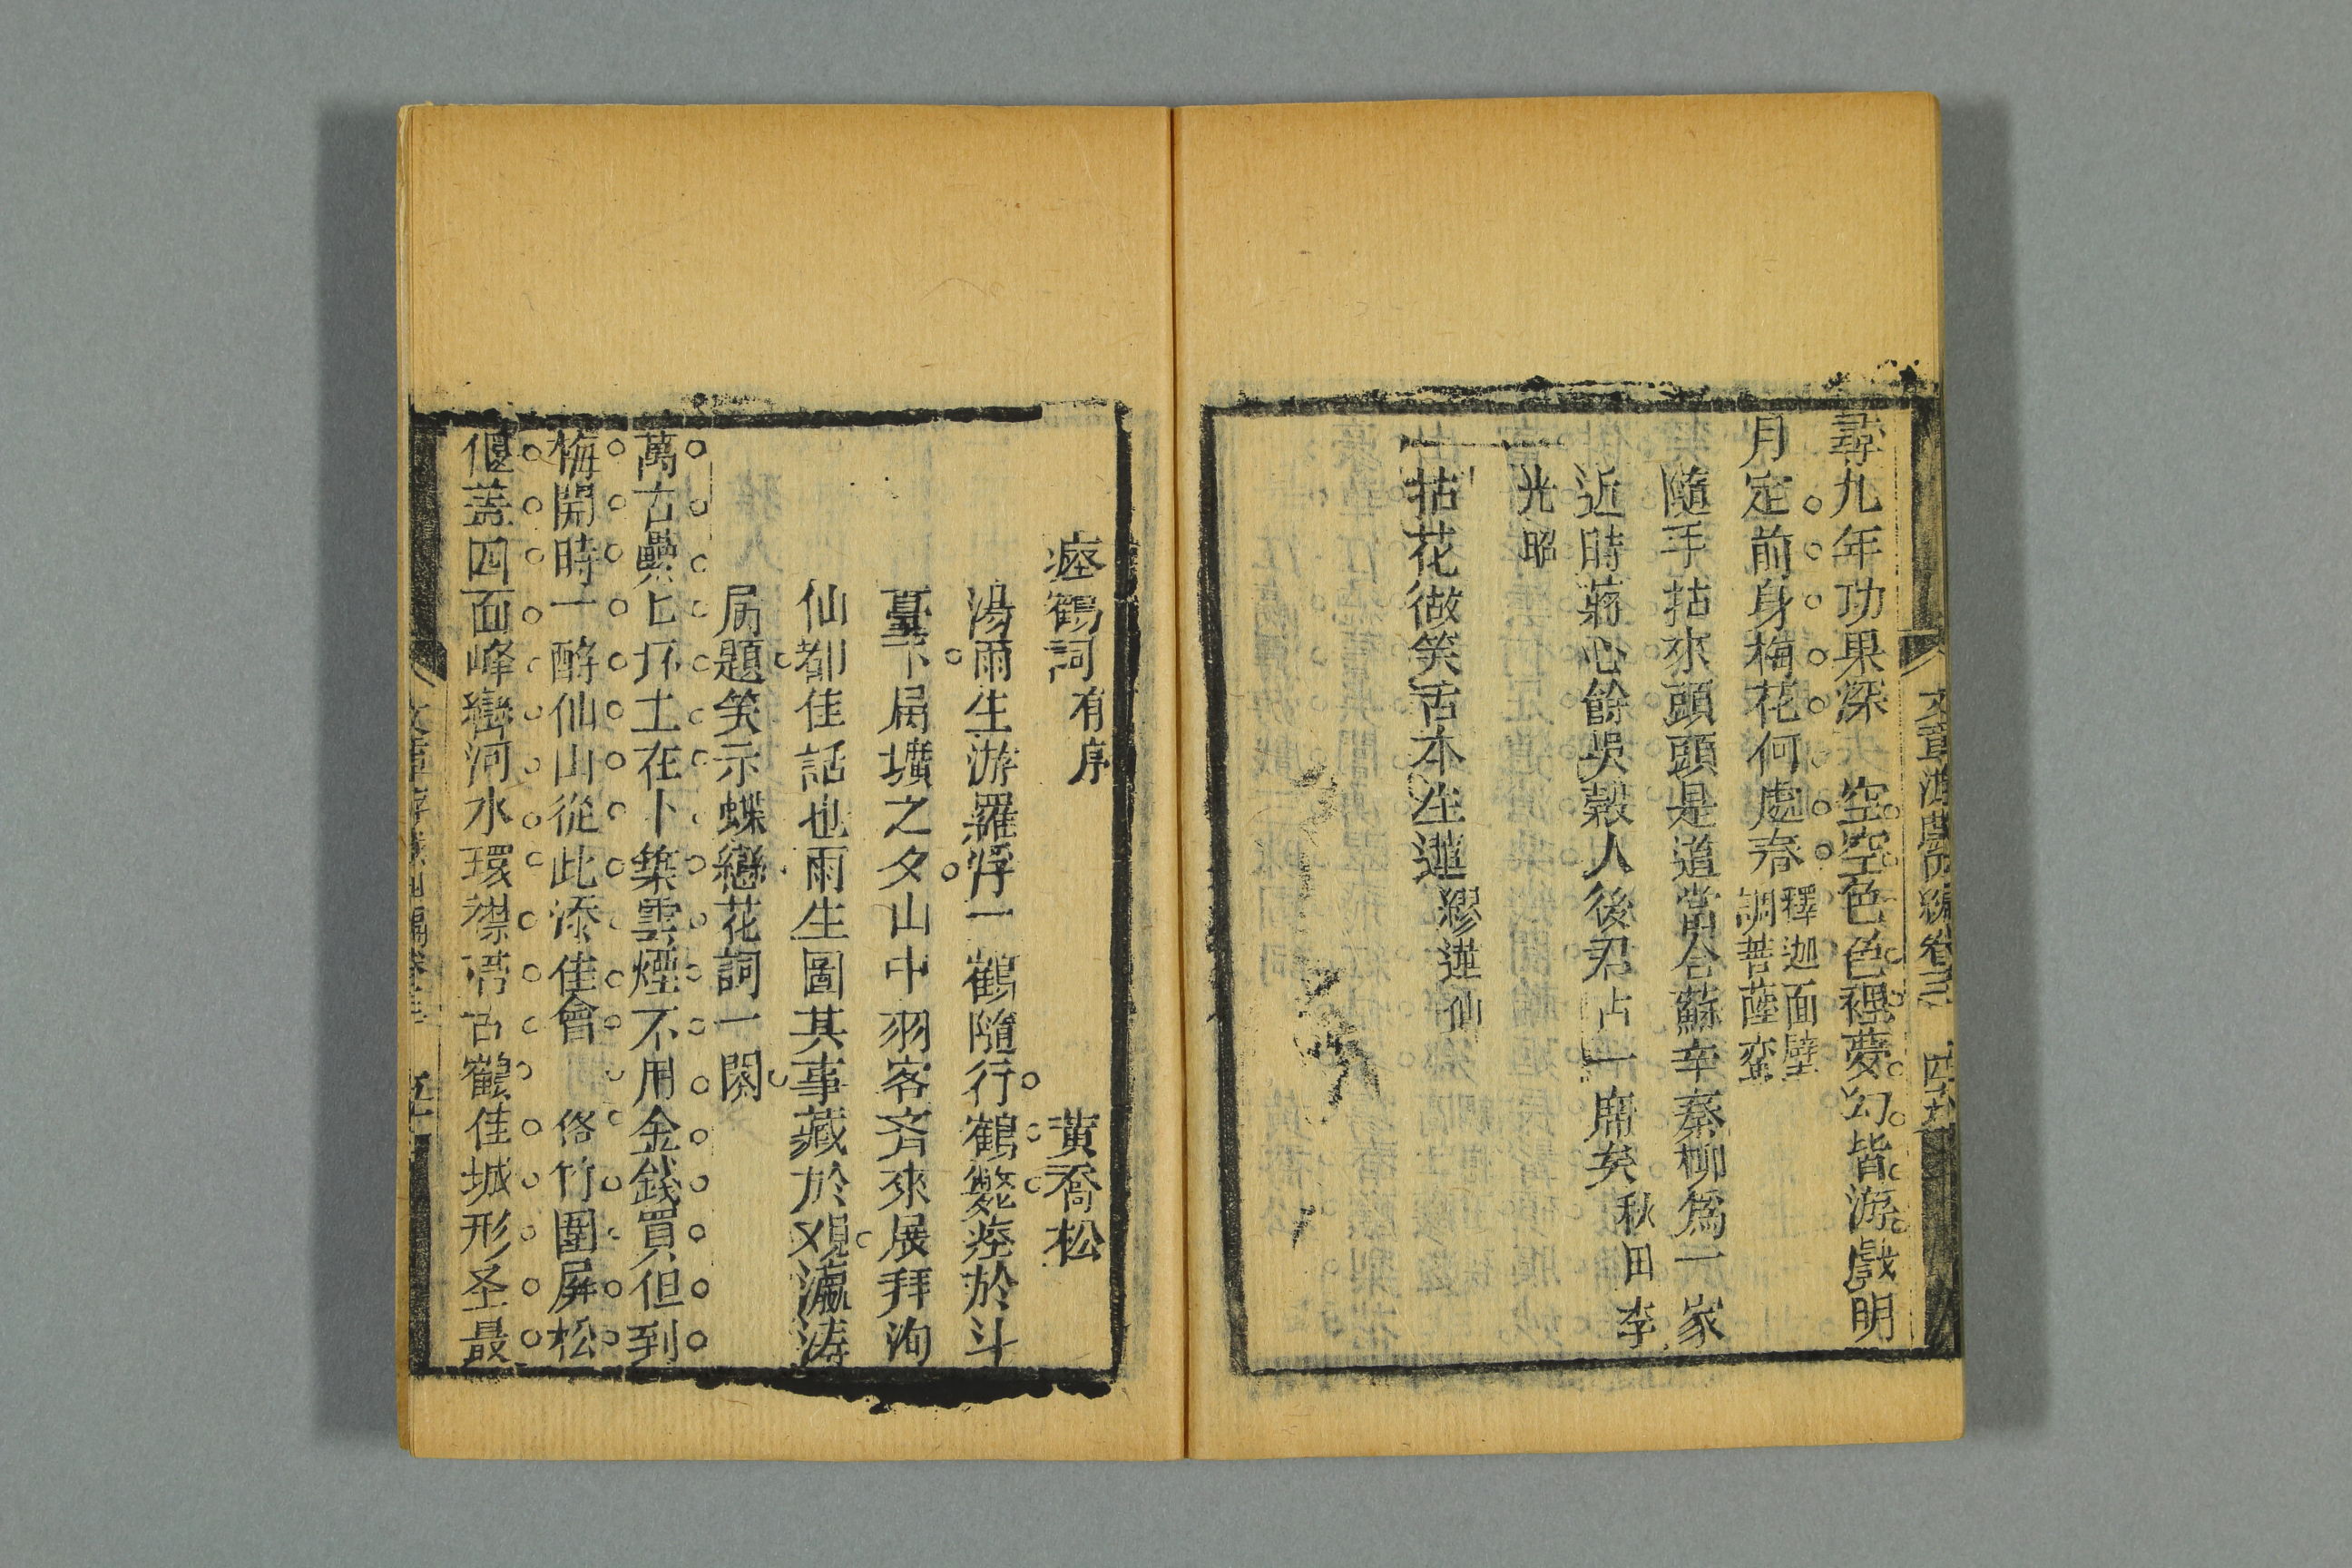 文章游戲四編卷三 四九
尋九年功果深 空空色色裡夢幻皆游戲明
月定前身梅花何處春 釋迦面壁調菩薩蛮
隨手拈來頭頭是道當合蘇辛秦柳爲一家
近時蔣心餘吳穀人後君占一席矣 秋田李
光昭
一拈花微笑舌本生蓮 繆蓮仙
瘞鶴詞 有序 黃喬松
湯雨生游羅浮一鶴隨行鶴斃瘞於斗
臺下局壙之夕山中羽客齊來展拜洵
仙都佳話也雨生圖其事藏於觀瀛濤
屬題笑示蝶戀花詞一闋
萬古罍上抔土在卜築雲煙不用金錢買但到
梅開時一酹仙山從此添佳會 俗竹圍屏松
偃蓋四面峰巒河水環襟帶古鶴佳城形圣最